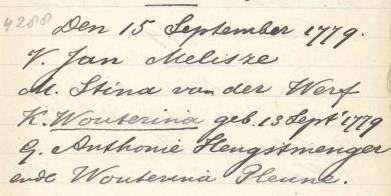 4288
Den 15 September 1779.
V. Jan Melisze
M. Stina van der Werf
K. Wouterina geb. 13 Sept 1779
G. Anthonie Hengstmenger
ende Wouterina Pleune.